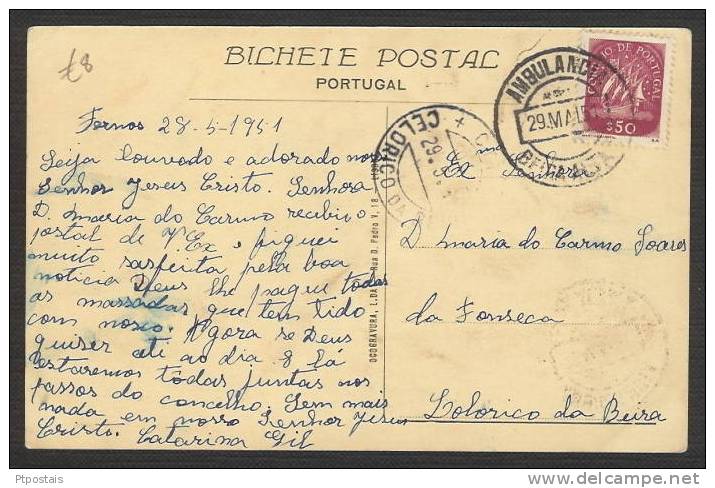 £8
BILHETE POSTAL
PORTUGAL
Fornos 28-5-1951
Seija louvado e adorado nos
Senhor Jesus Cristo. Senhora
D. Maria do Carmo recebi o
postal de V. Ex e fiquei
muito sasfeita pela boa
noticia Deus lhe pague todas
as massadas que tem tido
com nosco. Agora se Deus
quiser até ao dia 8 lá
estaremos tôdas juntas nos
passos do concelho. Sem mais
nada em nosso Senhor Jesus
Cristo. Catarina Gil
OCOGRAVURA, L.DA Rua D. Pedro V, 18
CELORICO
29
AMBULANCIA
29.MAI
IO·DE PORTUGAL
$50
Ex Senhora
D Maria do Carmo Soares
da Fonseca
Celorico da Beira
Ptpostais
delcampe.net